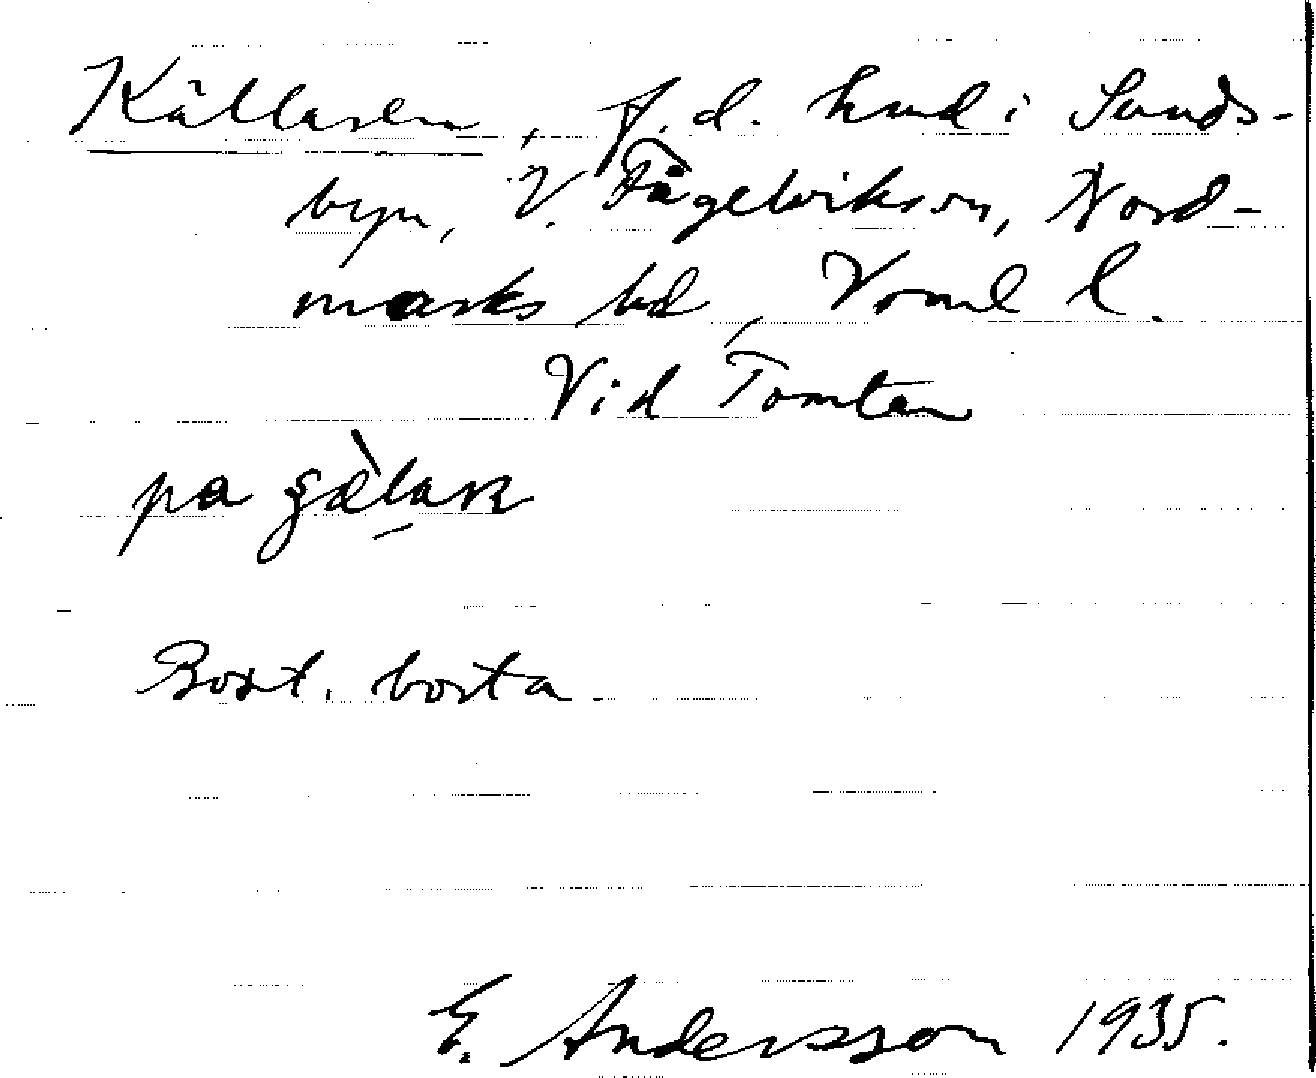 Källaren, f.d. hmd i Sunds-
byn, V. Fågelviks sn, Nord-
marks hd, Vrml l.
Vid Tomtan
pa
Bort. borta.
E. Andersson 1935.